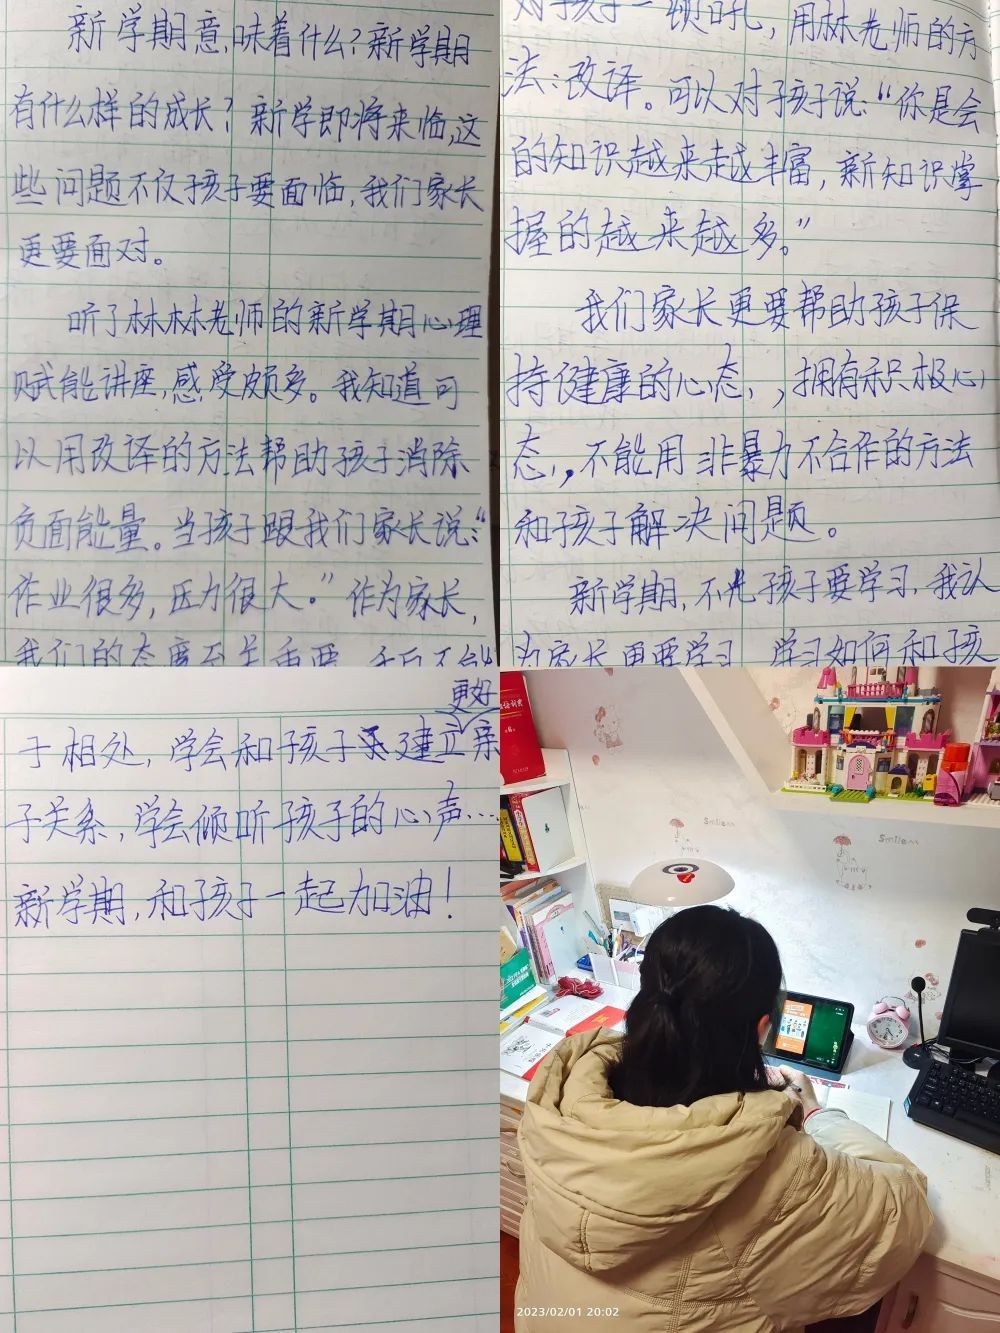 新学期意味着什么？新学期
有什么样的成长？新学即将来临，这
些问题不仅孩子要面临，我们家长
更要面对。
听了林林老师的新学期心理
赋能讲座，感受颇多。我知道可
以用改译的方法帮助孩子消除
负面能量。当孩子跟我们家长说：“
作业很多，压力很大。”作为家长，
我们的态度至关重要，千万不能
对孩子一顿吼，用林老师的方
法：改译。可以对孩子说：“你是会
的知识越来越丰富，新知识掌
握的越来越多。”
我们家长更要帮助孩子保
持健康的心态，，拥有积极心
态，。不能用非暴力不合作的方法
和孩子解决问题。
新学期，不光孩子要学习，我认
为家长更要学习，学习如何和孩
更好
子相处，学会和孩子建立亲
子关系，学会倾听孩子的心声…
新学期，和孩子一起加油！
Smile
Smile
2023/02/01 20:02